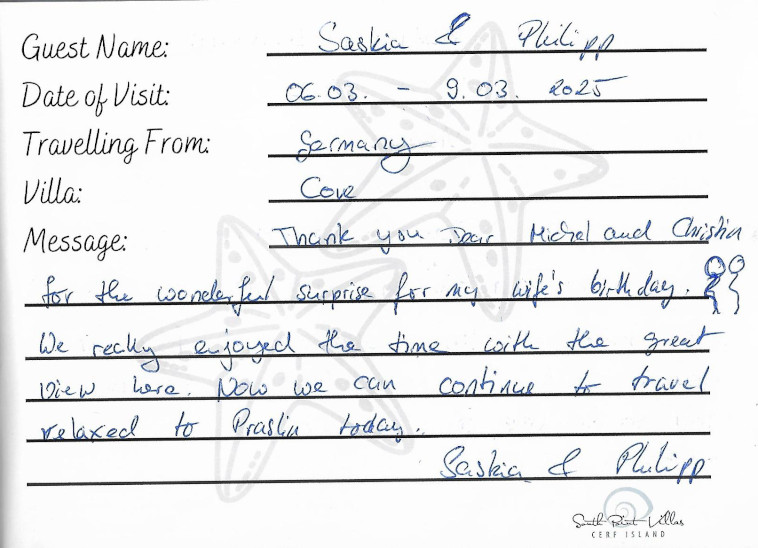 Guest Name: Saskia & Philipp
Date of Visit: 06.03. - 9.03. 2025
Travelling From: Germany
Villa: Cove
Message: Thank you Dear Michel and Christin
for the wonderful surprise for my wife's birthday.
We really enjoyed the time with the great
view here. Now we can continue to travel
relaxed to Praslin today.
Saskia & Philipp
South Point Villas
CERF ISLAND